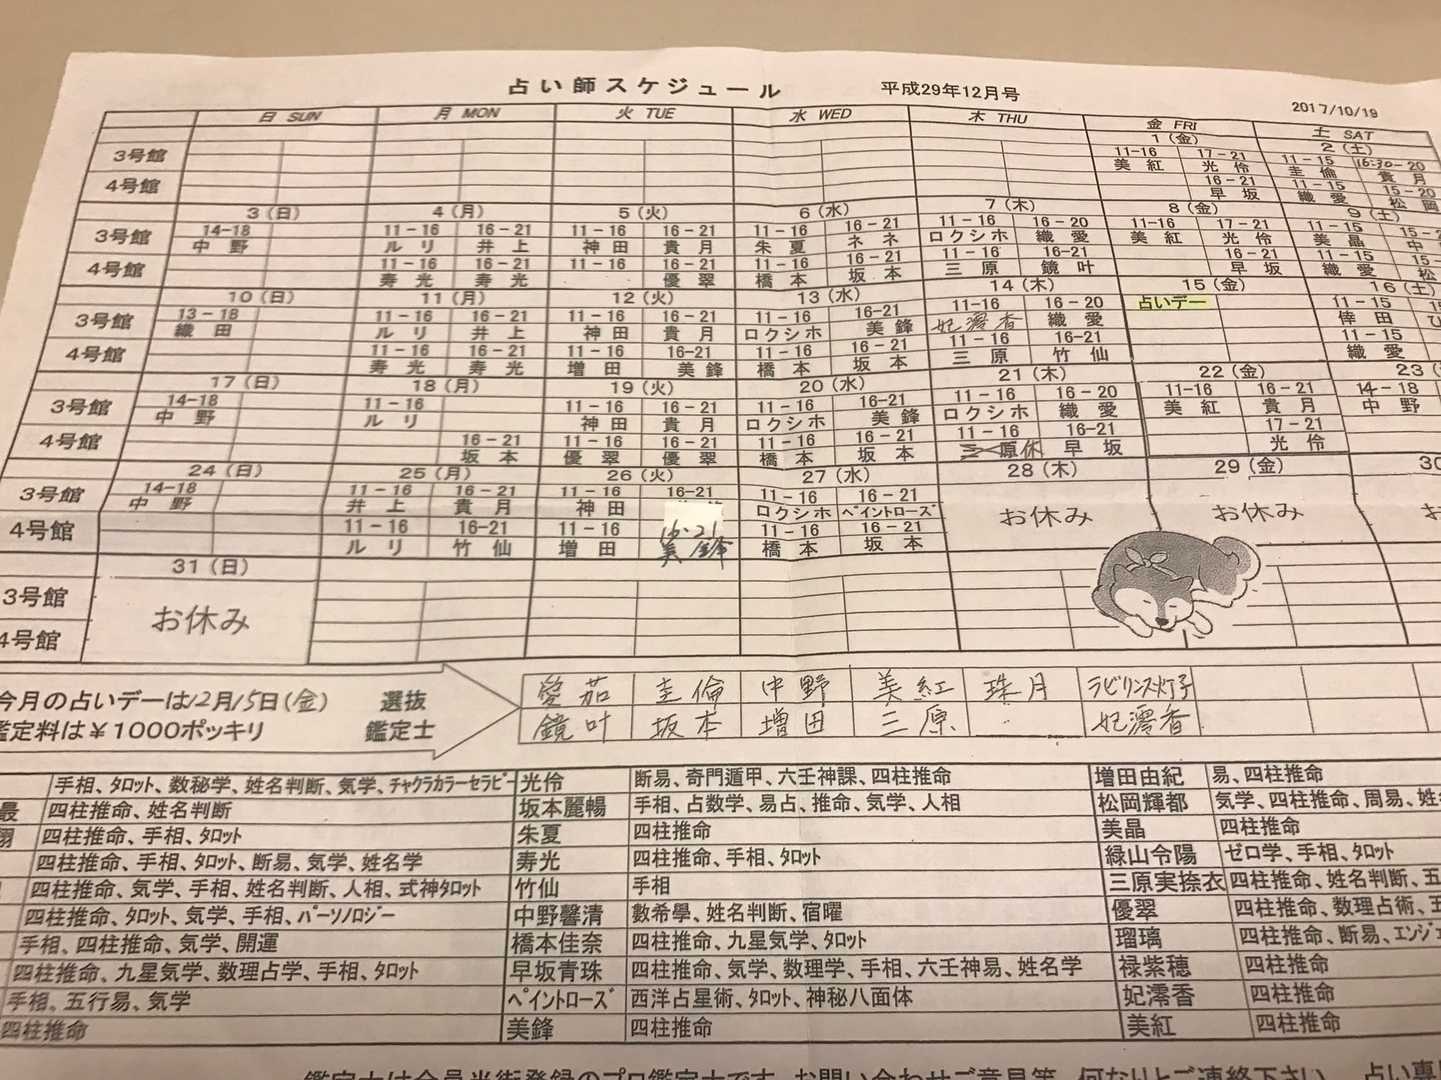 占い師スケジュール 平成29年12月号 2017/10/19
日 SUN 月 MON 火 TUE 水 WED 木 THU 金 FRI 土 SAT
1(金) 2(土)
3号館 11-16 17-21 11-15 16:30-20
美紅 光伶 圭倫 貴月
4号館 16-21 11-15 15-20
早坂 織愛 松岡
3(日) 4(月) 5(火) 6(水) 7(木) 8(金) 9(土)
3号館 14-18 11-16 16-21 11-16 16-21 11-16 16-21 11-16 16-20 11-16 17-21 11-15
中野 ルリ 井上 神田 貴月 朱夏 ネネ ロクシホ 織愛 美紅 光伶 美晶 中
4号館 11-16 16-21 11-16 16-21 11-16 16-21 11-16 16-21 16-21 11-15
寿光 寿光 優翠 橋本 坂本 三原 鏡叶 早坂 織愛 松
10(日) 11(月) 12(火) 13(水) 14(木) 15(金) 16(土)
3号館 13-18 11-16 16-21 11-16 16-21 11-16 16-21 11-16 16-20 占いデー 11-15
織田 ルリ 井上 神田 貴月 ロクシホ 美鋒 妃澪香 織愛 倖田 ひ
4号館 11-16 16-21 11-16 16-21 11-16 16-21 11-16 16-21 11-15
寿光 寿光 増田 美鋒 橋本 坂本 三原 竹仙 織愛
17(日) 18(月) 19(火) 20(水) 21(木) 22(金) 23
3号館 14-18 11-16 11-16 16-21 11-16 16-21 11-16 16-20 11-16 16-21 14-18
中野 ルリ 神田 貴月 ロクシホ 美鋒 ロクシホ 織愛 美紅 貴月 中野
4号館 16-21 11-16 16-21 11-16 16-21 11-16 16-21 17-21
坂本 優翠 優翠 橋本 坂本 三原休 早坂 光伶
24(日) 25(月) 26(火) 27(水) 28(木) 29(金) 30
3号館 14-18 11-16 16-21 11-16 16-21 11-16 16-21 お休み お休み お
中野 井上 貴月 神田 ロクシホ ペイントローズ
4号館 11-16 16-21 11-16 16-21 11-16 16-21
ルリ 竹仙 増田 美鋒 橋本 坂本
31(日)
3号館 お休み
4号館
今月の占いデーは12月15日(金) 選抜 愛茄 圭倫 中野 美紅 珠月 ラビリンス灯子
鑑定料は￥1000ポッキリ 鑑定士 鏡叶 坂本 増田 三原 妃澪香
手相、タロット、数秘学、姓名判断、気学、チャクラカラーセラピー 光伶 断易、奇門遁甲、六壬神課、四柱推命 増田由紀 易、四柱推命
最 四柱推命、姓名判断 坂本麗暢 手相、占数学、易占、推命、気学、人相 松岡輝都 気学、四柱推命、周易、姓
翔 四柱推命、手相、タロット 朱夏 四柱推命 美晶 四柱推命
四柱推命、手相、タロット、断易、気学、姓名学 寿光 四柱推命、手相、タロット 緑山令陽 ゼロ学、手相、タロット
四柱推命、気学、手相、姓名判断、人相、式神タロット 竹仙 手相 三原実捺衣 四柱推命、姓名判断、五
四柱推命、タロット、気学、手相、パーソノロジー 中野馨清 數希學、姓名判断、宿曜 優翠 四柱推命、数理占術、五
手相、四柱推命、気学、開運 橋本佳奈 四柱推命、九星気学、タロット 瑠璃 四柱推命、断易、エンジェ
四柱推命、九星気学、数理占学、手相、タロット 早坂青珠 四柱推命、気学、数理学、手相、六壬神易、姓名学 禄紫穂 四柱推命
手相、五行易、気学 ペイントローズ 西洋占星術、タロット、神秘八面体 妃澪香 四柱推命
四柱推命 美鋒 四柱推命 美紅 四柱推命